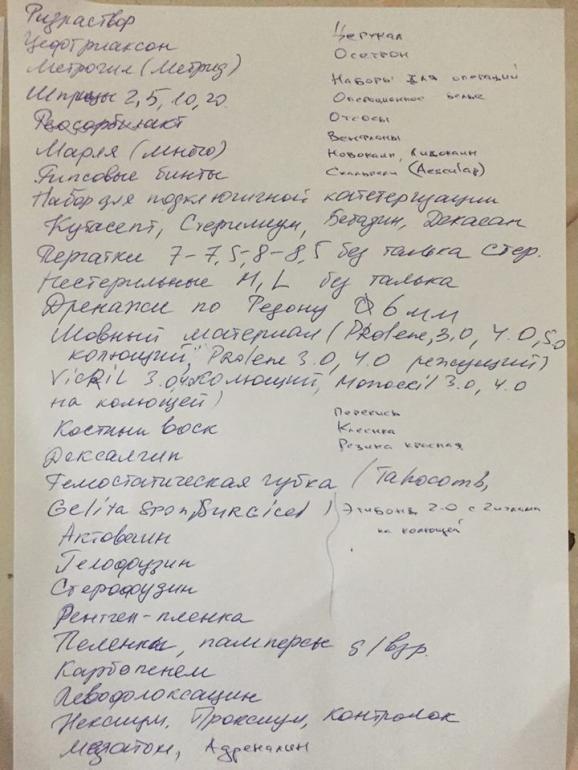 Ридраствор
Цефтриаксон
Метрогил (Метрид)
Шприцы 2, 5, 10, 20.
Реосорбилакт
Марля (много)
Гипсовые бинты
Набор для подключичной катетеризации
Кутасепт, Стерилиум, Бетадин, Декасан
Перчатки 7-7,5-8-8,5 без талька стер.
Нестерильные M, L без талька
Дренажи по Редону 6 мм
Шовный материал (Prolene, 3.0, 4.0, 5.0
колющий, Prolene 3.0, 4.0 режущий)
Vicril 3.0 колющий, Monocril 3.0, 4.0
на колющей)
Костный воск
Дексалгин
Гемостатическая губка (Tahocomb,
Gelita Spon, Surgicel)
Актовегин
Гелофузин
Стерофузин
Рентген-пленка
Пеленки, памперсы д/взр.
Карбопенем
Левофлоксацин
Нексиум, Проксиум, Контролок
Мезатон, Адреналин
Церукал
Осетрон
Наборы для операций
Операционное белье
Отсосы
Венфлоны
Новокаин, Лидокаин
Скальпели (Aesculap)
Перекись
Клеенка
Резина красная
Этибонд 2.0 с 2 иглами
на колющей